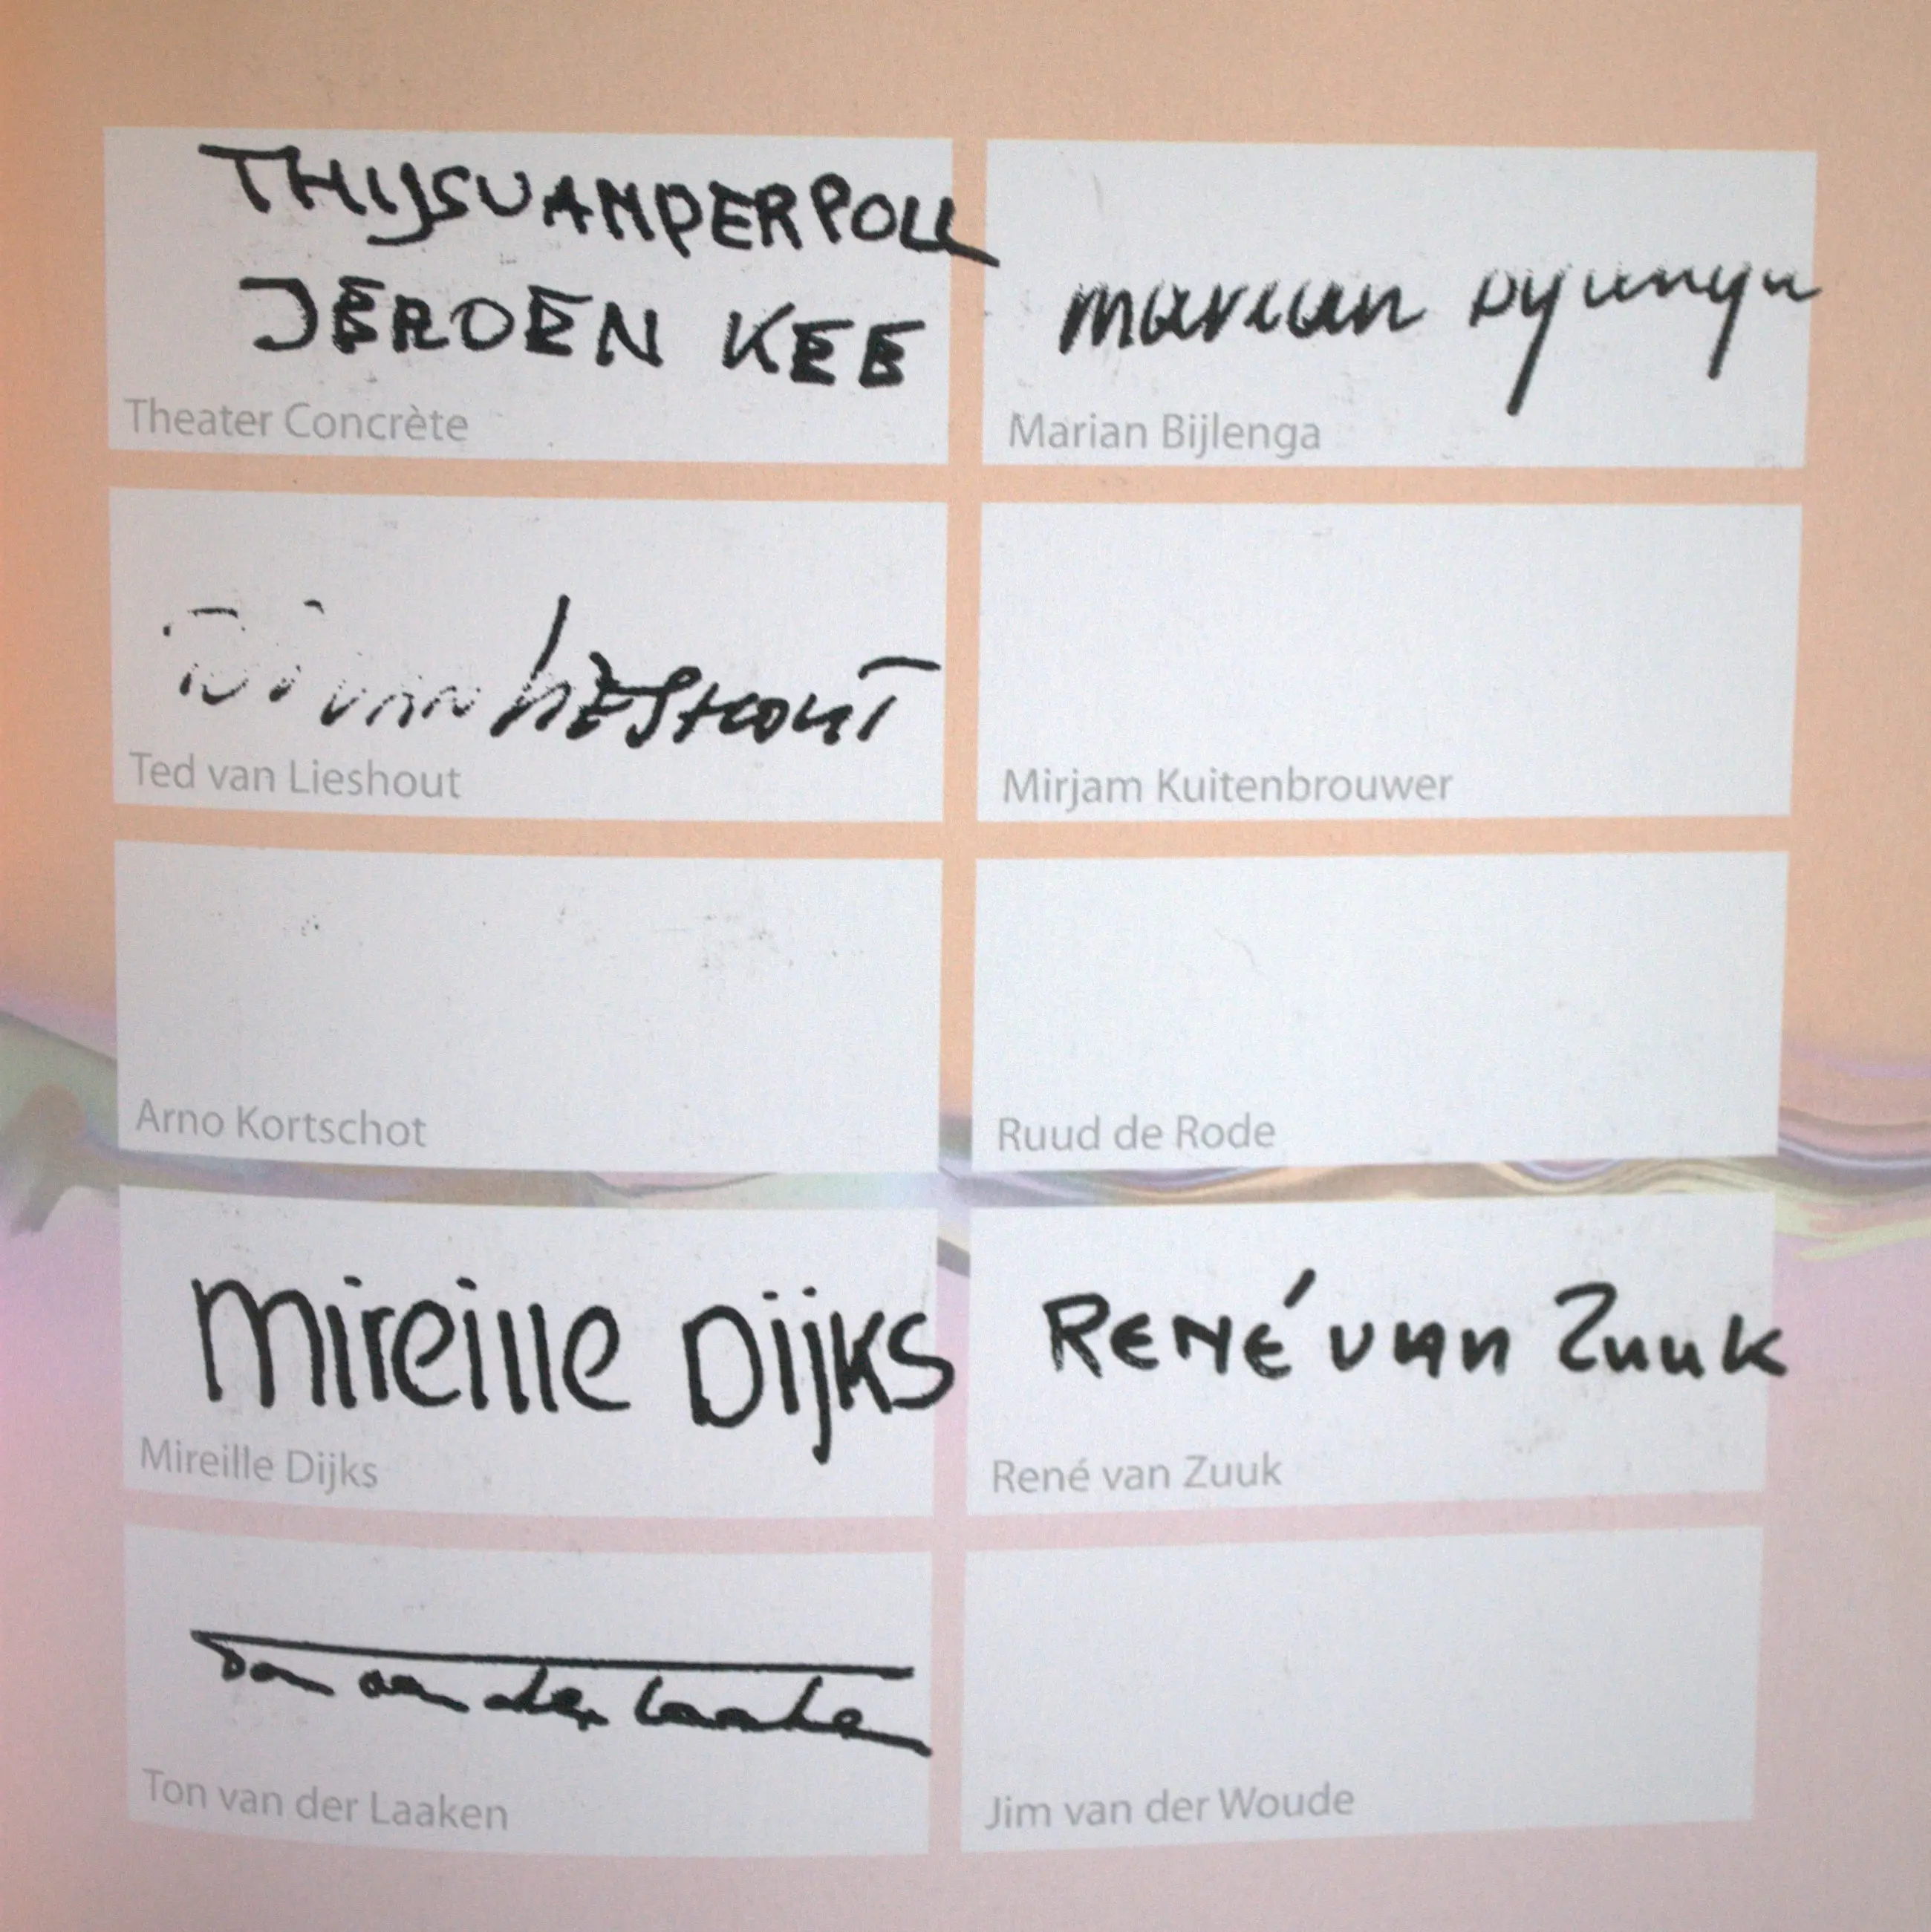 THIJS VAN DER POLL
JEROEN KEE
Theater Concrète
marian Bijlenga
Marian Bijlenga
Ted van LIESHOUT
Ted van Lieshout
Mirjam Kuitenbrouwer
Arno Kortschot
Ruud de Rode
Mireille Dijks
Mireille Dijks
RENÉ van Zuuk
René van Zuuk
Ton van der Laaken
Ton van der Laaken
Jim van der Woude